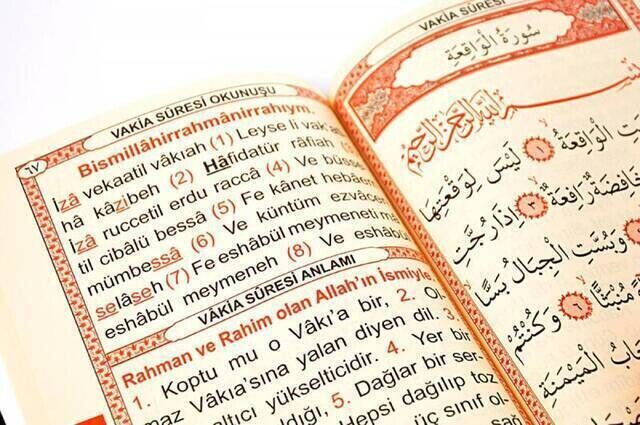 VAKİA SÛRESİ OKUNUŞU
Bismillâhirrahmânirrahıym.
İzâ vekaatil vâkıah (1) Leyse li vak'a
hâ kâzibeh (2) Hâfidatür râfiah
İzâ ruccetil erdu raccâ (4) Ve büsse
til cibâlü bessâ (5) Fe kânet hebâen
mümbessâ (6) Ve küntüm ezvâcen
selâseh (7) Fe eshâbül meymeneti ma
eshâbül meymeneh (8) Ve eshâbü
VÂKİA SÛRESİ ANLAMI
Rahman ve Rahim olan Allah'ın İsmiyle
1. Koptu mu o Vâkı'a bir, 2. Ol-
maz Vâkıa'sına yalan diyen dil. 3.
altıcı yükselticidir. 4. Yer bir
ldığı, 5. Dağlar bir ser-
Hepsi dağılıp toz
üç sınıf ol-
sağ
٦٧
VAKİA SÛRESİ
سُورَةُ الْوَاقِعَةِ
بِسْمِ اللَّهِ الرَّحْمَنِ الرَّحِيمِ
الْوَاقِعَةُ ١ لَيْسَ لِوَقْعَتِهَا
خَافِضَةٌ رَافِعَةٌ ٣ إِذَا رُجَّتِ
وَبُسَّتِ الْجِبَالُ بَسًّا
مُنْبَثًّا ٦ وَكُنْتُمْ
الْمَيْمَنَةِ